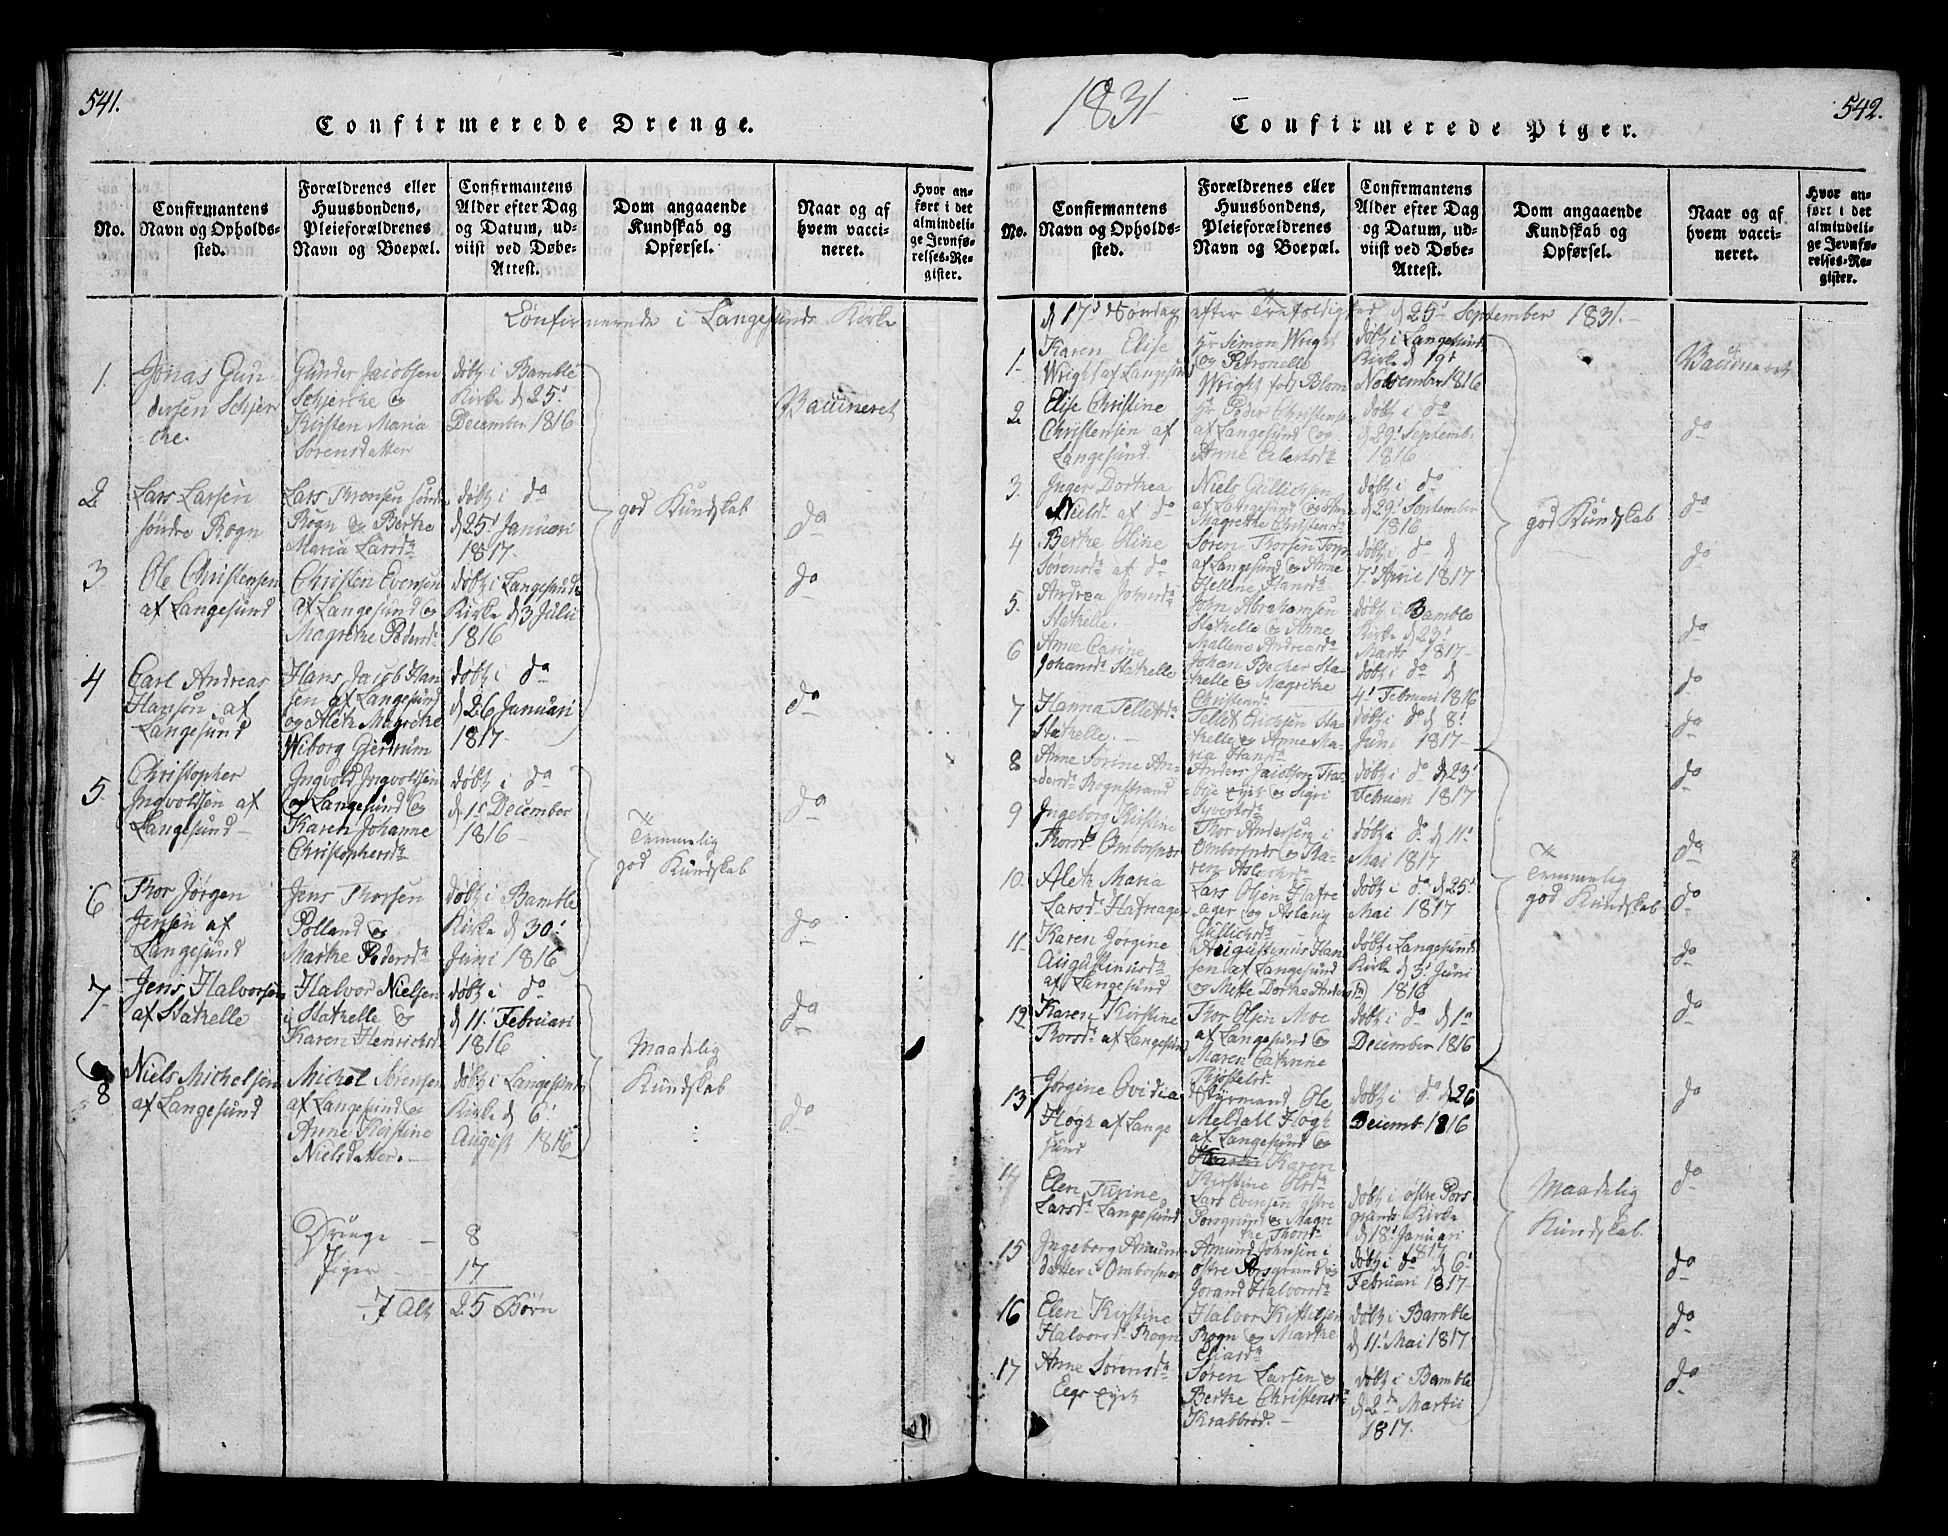 541.
Confirmerede Drenge.
No.
Confirmantens Navn og Opholds-sted.
Forældrenes eller Huusbondens, Pleieforældrenes Navn og Boepæl.
Confirmantens Alder efter Dag og Datum, ud-viist ved Døbe-Attest.
Dom angaaende Kundskab og Opførsel.
Naar og af hvem vacci-neret.
Hvor an-ført i det almindeli-ge Jevnfø-relses-Re-gister.
Confirmerede i Langesunds Kirke
1.
Jonas Gun-
dersen Schjer
-cke.
Gunder Jacobsen
Schjercke og
Kirsten Maria
Sørensdatter
døbt i Bamble
Kirke d 25.
December 1816
Vaccineret
2
Lars Larsen
søndre Rogn
Lars Thronsen søndre
Rogn og Berthe
Maria Larsd.
døbt i do
d 25 Januari
1817.
god Kundskab
do
3
Ole Christensen
af Langesund
Christen Evensen
af Langesund og
Magrethe Pedersd.
døbt i Langesunds
Kirke d 3 Julii
1816
do
4
Carl Andreas
Hansen af
Langesund
Hans Jacob Han
sen af Langesund
og Aleth Magrethe
Wiborg Gjertrum
døbt i do
d 26 Januari
1817.
do
5
Christopher
Ingvoldsen af
Langesund
Ingvold Ingvoldsen
Langesund og
Karen Johanne
Christophersdr
døbt i do
d 1s December
1816
Temmelig
god Kundskab
do
6
Thor Jørgen
Jensen af
Langesund
Jens Thorsen
Polland og
Marthe Pedersdr
døbt i Bamble
Kirke d 30.
Juni 1816
do
7
Jens Halvorsen
af Stathelle
Halvor Nielsen
Stathelle og
Karen Henrichsd.
døbt i do
d 11. Februari
1816
Maadelig
Kundskab
do
8
Niels Michelsen
af Langesund
Michel Sørensen
af Langesund og
Anne Kirstine
Nielsdatter.
døbt i Langesunds
Kirke d 6
August 1816
do
Drenge - 8
Piger - 17
I Alt 25 Børn
1831
542.
Confirmerede Piger.
No.
Confirmantens Navn og Opholds-sted.
Forældrenes eller Huusbondens, Pleieforældrenes Navn og Boepæl.
Confirmantens Alder efter Dag og Datum, ud-viist ved Døbe-Attest.
Dom angaaende Kundskab og Opførsel.
Naar og af hvem vacci-neret.
Hvor an-ført i det almindeli-ge Jevnfø-relses-Re-gister.
d 17d Søndag efter Trefoldighed d 25d September 1831.
1.
Karen Elise
Wright af Langesund
Hr Simon Wright
og Petronelle
Wright
døbt i Langesund
Kirke d 19t
November 1816
Vaccineret
2
Elise Christine
Christensen af
Langesund
Hr Peder Christensen
af Langesund og
Anne
døbt i do
d 29. Septembr
1816
do
3.
Inger Dorthea
Nielsd. af do
Niels Gullichsen
af Langesund
Magrethe Christensd
døbt i do
d 29. September
1816
god Kundskab
do
4
Berthe Oline
Sørensdr af do
Søren Thorsen
af Langesund og Anne
Hellene Hansdr
døbt i do d
7. April 1817
do
5.
Andrea Johnsdr
Stathelle.
John Abrahamsen
Stathelle og Anne
Mallene Andreasdr
døbt i Bamble
Kirke d 23.
Marts 1817
do
6
Anne Carine
Johansdr Stathelle
Johan Becher Sta-
thelle og Magrethe
Christensdr
døbt i do d
4. Februari 1816
do
7
Hanna Tellefsdr
Stathelle.
Tellef Erichsen Sta-
thelle og Anne Ma-
ria Hansdr
døbt i do d 8.
Juni 1817
do
8
Anne Sørine An-
dersdr Rognstrand
Anders Jacobsen
Eyet og Sigri
Syversdr
døbt i do d 23.
Februari 1817
do
9
Ingeborg Kirstine
Thorsdr Ombordsnæs
Thor Andersen i
Ombordsnæs og Ka-
ren Aslachsdr
døbt i do d 11.
Mai 1817
Temmelig
god Kundskab
do
10.
Aleth Maria
Larsdr Hafsager
Lars Olsen Hafre
ager og Aslaug
Gullichsdr
døbt i do d 25.
Mai 1817
do
11.
Karen Jørgine
Augustinusdr
af Langesund
Augustinus Han
sen af Langesund
og Mette Dorthe Andersdr
døbt i Langesunds
Kirke d 3. Juni
1816
do
12
Karen Kirstine
Thorsdr af Langesund
Thor Olsen Moe
af Langesund og
Maren Cathrine
Kjøstelsdr
døbt i do d 1s
December 1816
do
13
Jørgine Ovidia
Høgh af Lange
sund
Styrmand Ole
Meldahl Høgh
af Langesund og
Karen
Kirstine Olsdr
døbt i do d 26
Decemb 1816
do
14
Elen Turine
Larsdr Langesund
Lars Evensen østre
Porsgrund og Magre
the Thorsdr
døbt i østre Pors
grunds Kirke
d 18. Januari
1817
Maadelig
Kundskab
do
15
Ingeborg Amunds
datter i Ombordsnæs
Amund Johnsen i
østre Porsgrund og
Jorand Halvorsdr
døbt i do d 6.
Februari 1817
do
16
Elen Kirstine
Halvorsdr Rogn
Halvor Kittilsen
Rogn og Marthe
Eliasdr
døbt i Bamble
d 11. Mai 1817
do
17
Anne Sørensdr
Eegs Eyet
Søren Larsen og
Berthe Christensdr
Krabbrød.
døbt i Bamble
d 2de Martii
1817.
do